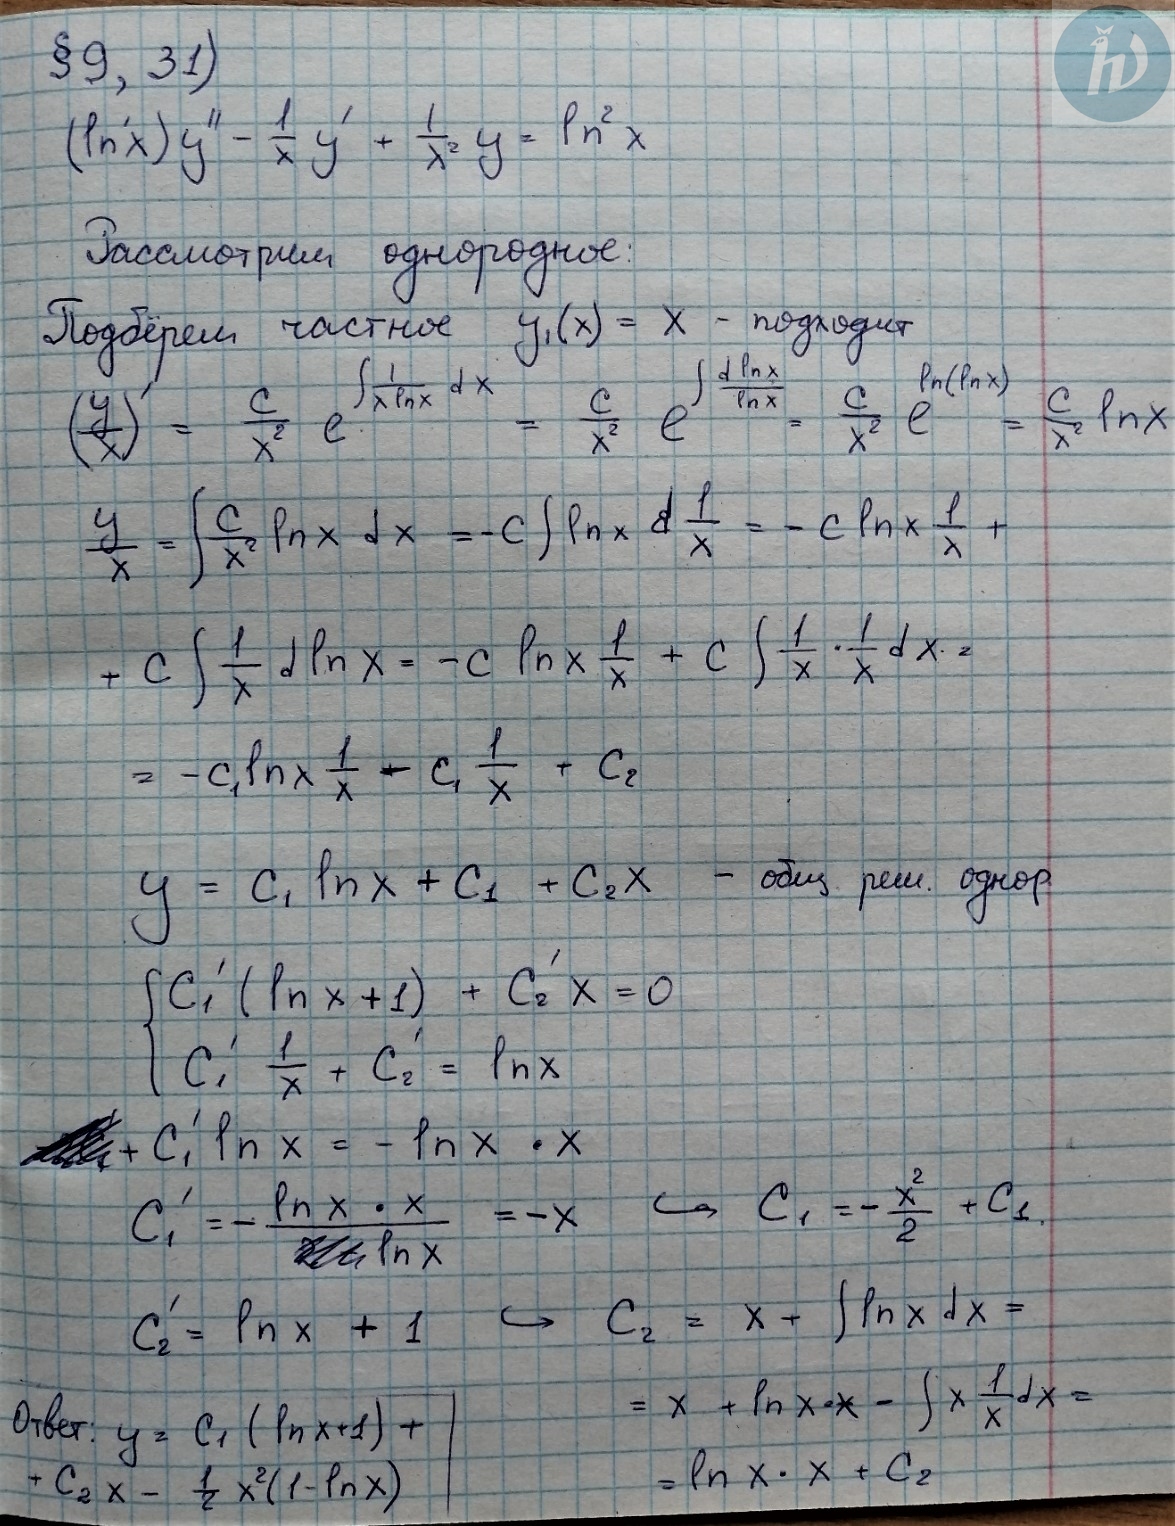 §9, 31)
(ln x) y'' - 1/x y' + 1/x² y = ln² x
Рассмотрим однородное:
Подберем частное y₁(x) = x - подходит
(y/x)' = C/x² e^{∫ 1/(x ln x) dx} = C/x² e^{∫ d ln x / ln x} = C/x² e^{ln(ln x)} = C/x² ln x
y/x = ∫ C/x² ln x dx = -C ∫ ln x d 1/x = - C ln x 1/x +
+ C ∫ 1/x d ln x = -C ln x 1/x + C ∫ 1/x · 1/x dx =
= -C₁ ln x 1/x - C₁ 1/x + C₂
y = C₁ ln x + C₁ + C₂x - общ. реш. однор
{ C₁' (ln x + 1) + C₂' x = 0
C₁' 1/x + C₂' = ln x
+ C₁' ln x = - ln x · x
C₁' = - (ln x · x)/(ln x) = -x ↪ C₁ = - x²/2 + C₁.
C₂' = ln x + 1 ↪ C₂ = x + ∫ ln x dx =
= x + ln x · x - ∫ x 1/x dx =
= ln x · x + C₂
Ответ: y = C₁ (ln x+1) +
+ C₂ x - 1/2 x² (1 - ln x)